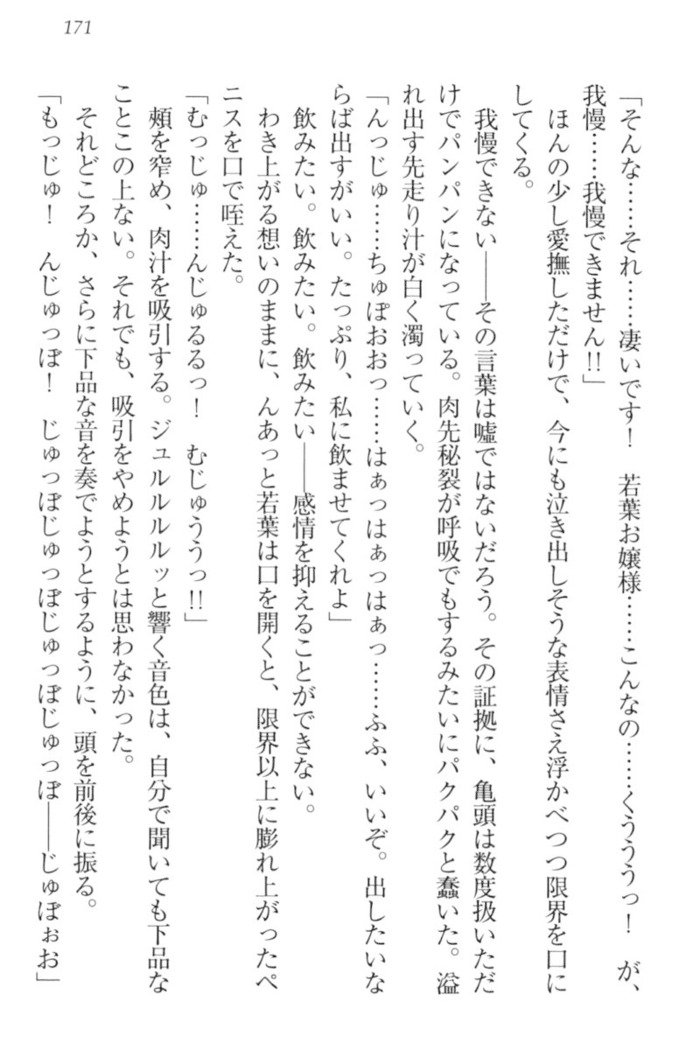 171
「そんな……それ……凄いです！　若葉お嬢様……こんなの……くううっ！　が、
我慢……我慢できません!!」
　ほんの少し愛撫しただけで、今にも泣き出しそうな表情さえ浮かべつつ限界を口に
してくる。
　我慢できない――その言葉は嘘ではないだろう。その証拠に、亀頭は数度扱いただ
けでパンパンになっている。肉先秘裂が呼吸でもするみたいにパクパクと蠢いた。溢
れ出す先走り汁が白く濁っていく。
「んっじゅ……ちゅぽおおっ……はぁっはぁっはぁっ……ふふ、いいぞ。出したいな
らば出すがいい。たっぷり、私に飲ませてくれよ」
　飲みたい。飲みたい。飲みたい――感情を抑えることができない。
　わき上がる想いのままに、んあっと若葉は口を開くと、限界以上に膨れ上がったペ
ニスを口で咥えた。
「むっじゅ……んじゅるるっ！　むじゅううっ!!」
　頬を窄め、肉汁を吸引する。ジュルルルルッと響く音色は、自分で聞いても下品な
ことこの上ない。それでも、吸引をやめようとは思わなかった。
　それどころか、さらに下品な音を奏でようとするように、頭を前後に振る。
「もっじゅ！　んじゅっぽ！　じゅっぽじゅっぽじゅっぽじゅっぽ――じゅぽぉお」